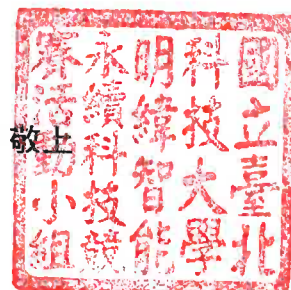 國立臺北
科技大學
明緯智能
永續科技競
賽活動小組
敬上